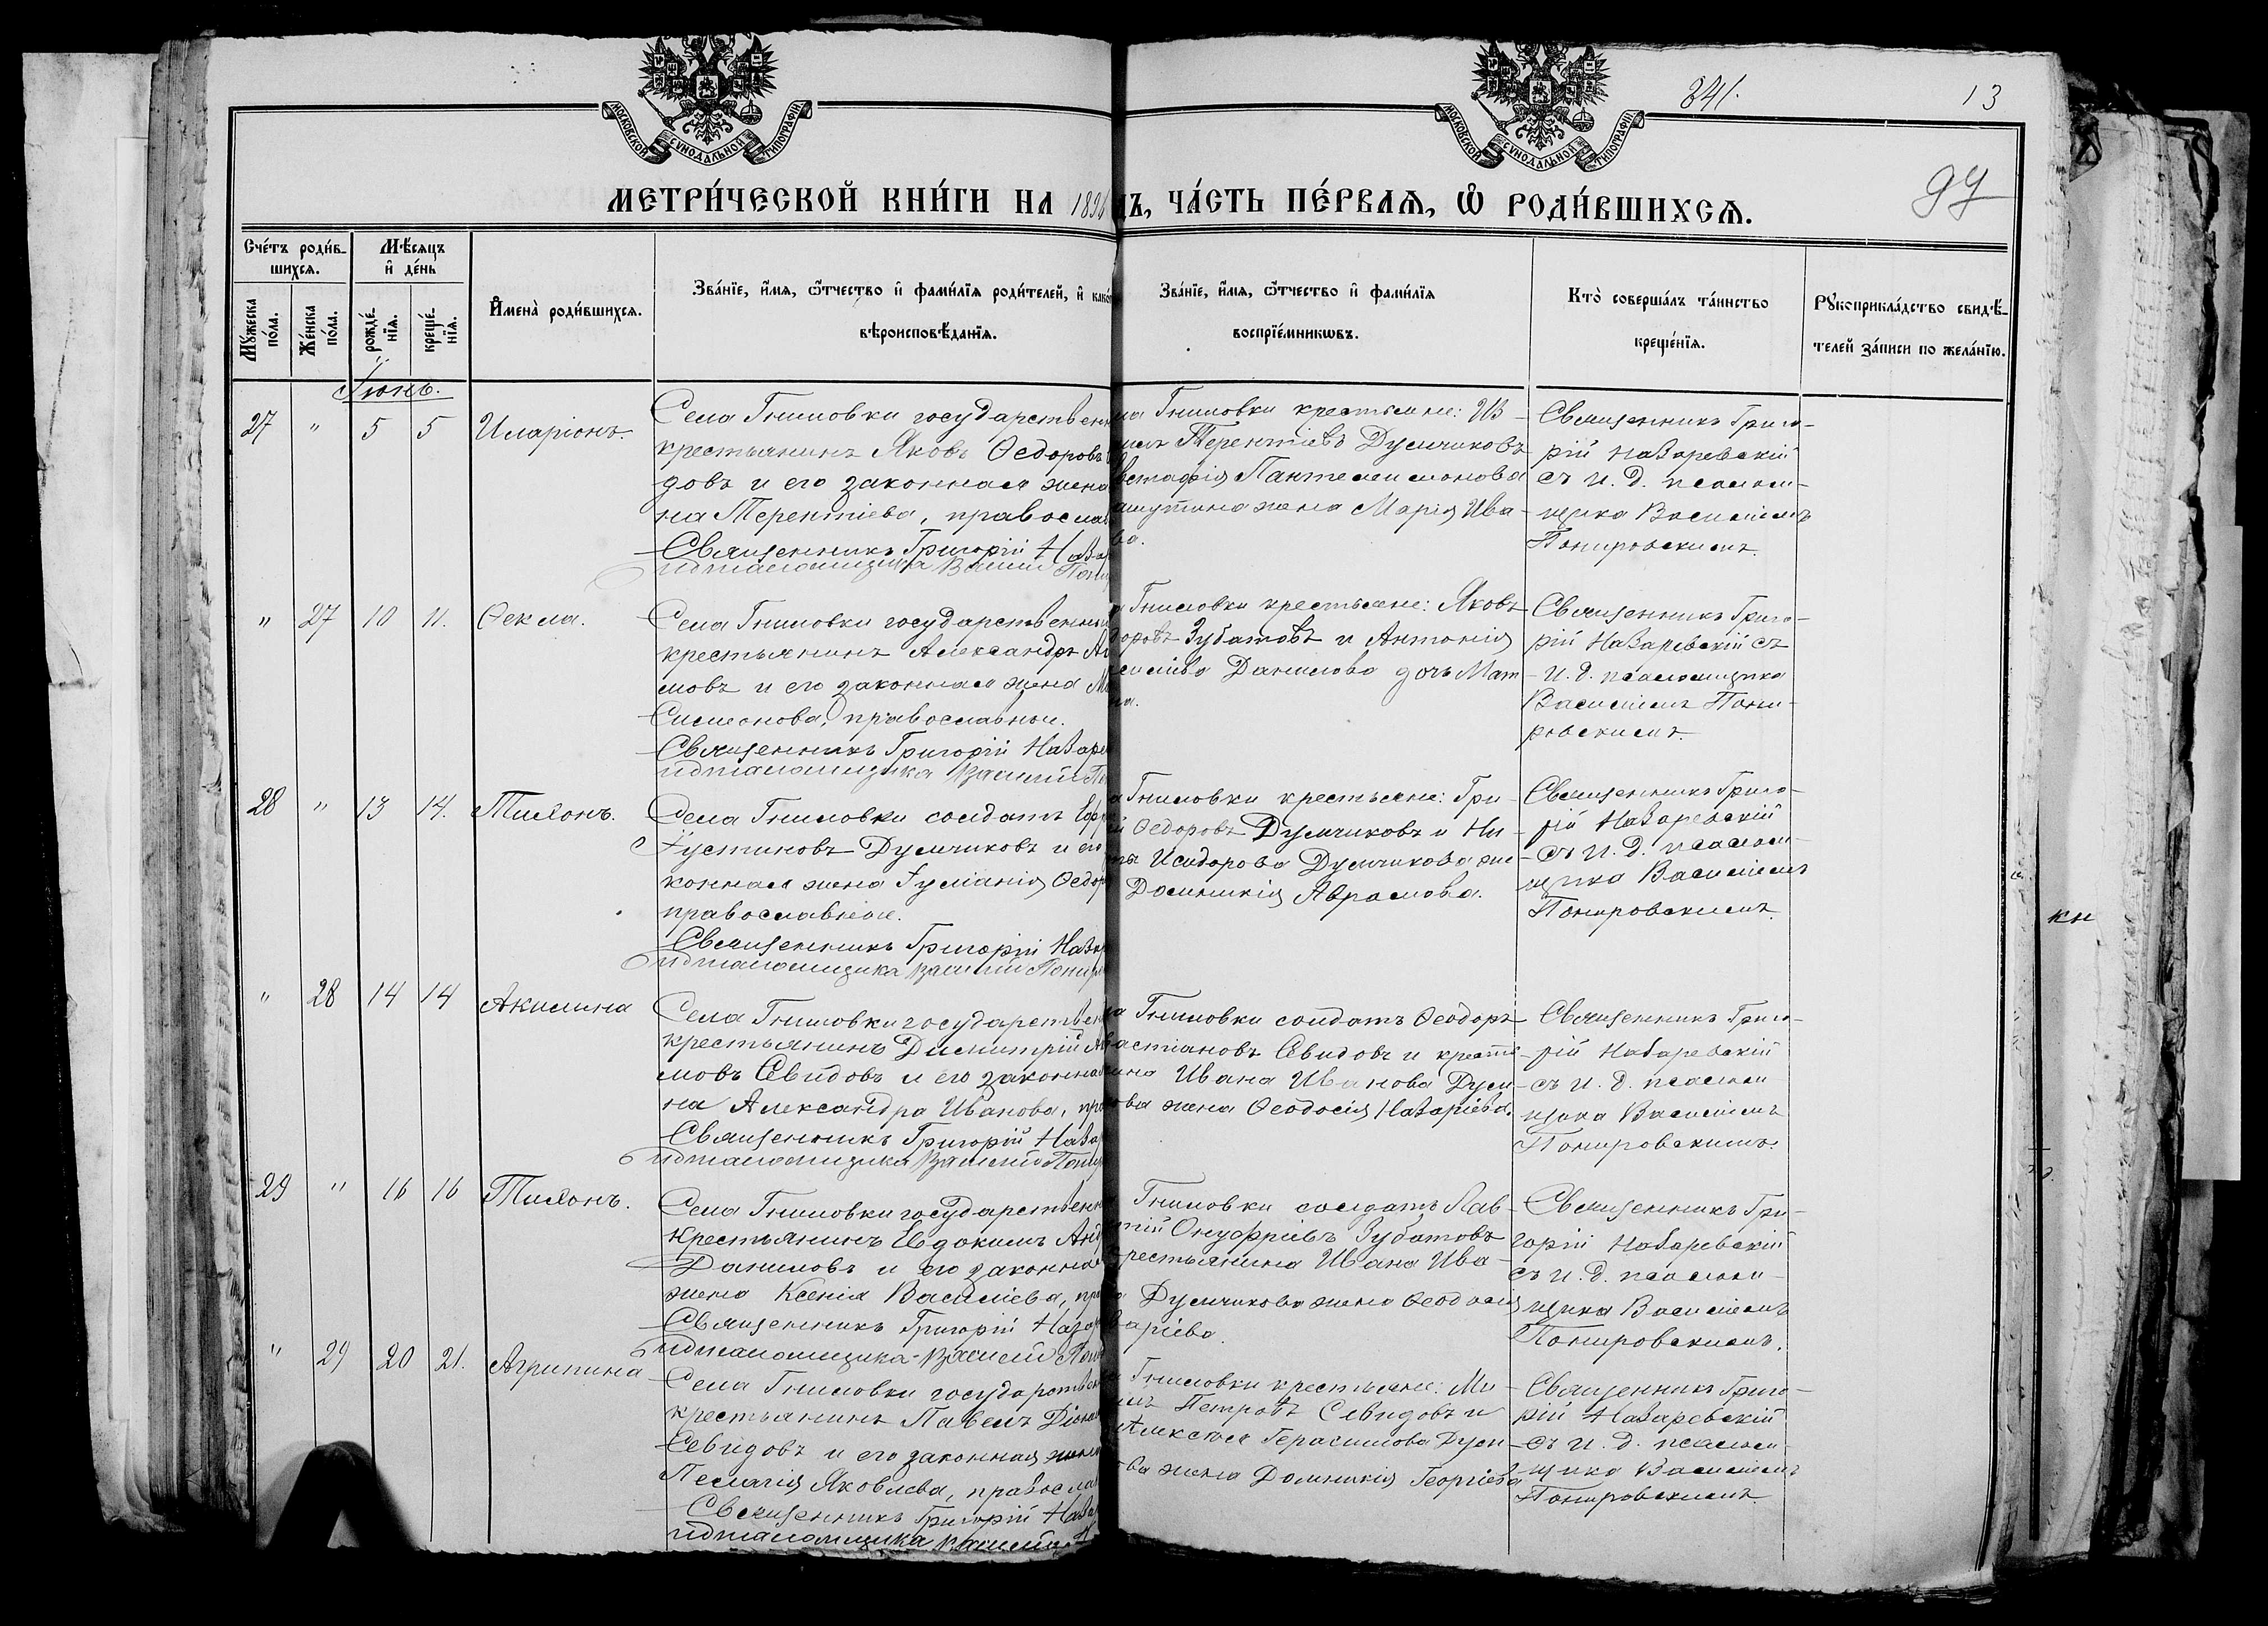 МОСКОВСКОЙ СѴНОДАЛЬНОЙ ТИПОГРАФІИ
МОСКОВСКОЙ СѴНОДАЛЬНОЙ ТИПОГРАФІИ
341.
13
97
МЕТРИ́ЧЕСКОЙ КНИ́ГИ НА 189
ДЪ, ЧА́СТЬ ПЕ́РВАѦ, Ѡ РОДИ́ВШИХСѦ.
Сче́тъ роди́в-
шихсѧ.
Мѣ́сяцъ
и де́нь
Мꙋжеска по́ла.
Же́нска по́ла.
рожде́-
нїѧ.
креще́-
нїѧ.
Имена̀ роди́вшихсѧ.
Зва́нїе, и́мѧ, ѻ́тчество и фами́лїѧ роди́телей, и како
вѣроисповѣ́данїѧ.
Зва́нїе, и́мѧ, ѻ́тчество и фами́лїѧ
воспрїе́мникѡвъ.
Кто̀ соверша́лъ та́инство
креще́нїѧ.
Рꙋкоприкла́дство свидѣ́-
телей за́писи по жела́нїю.
Іюнь.
27 " 5 5 Иларіонъ.
Села Гниловки государствен
крестьянинъ Яковъ Ѳедоровъ
довъ и его законная жена
на Терентіева, православ
Священникъ Григорій Наза
идпсаломщика Василій Пони
на Гниловки крестьяне: Из-
Терентіевъ Думчиковъ
встафія Пантелеимонова
жена Марія Ива-
ва.
Священникъ Григо-
рій Назаревскій
съ И. Д. псалом-
щика Василіемъ
Понировскимъ.
" 27 10 11. Ѳекла.
Села Гниловки государственны
крестьянинъ Александръ А
мовъ и его законная жена М
Симеонова, православныи.
Священникъ Григорій Назаре
идпсаломщика Василій По
а Гниловки крестьяне: Яковъ
доровъ Зубатовъ и Антонія
Данилова дочь Мат-
на.
Священникъ Григо-
рій Назаревскій съ
И. Д. псаломщика
Василіемъ Пони-
ровскимъ.
28 " 13 14. Тихонъ.
Села Гниловки солдатъ Ефр
Іустиновъ Думчиковъ и его
конная жена Іуліанія Ѳедор
православные.
Священникъ Григорій Назар
идпсаломщика Василій Понир
а Гниловки крестьяне: Гри-
ій Ѳедоровъ Думчиковъ и Ни-
ты Исидорова Думчикова же-
Домникія Аврамова.
Священникъ Григо-
рій Назаревскій
съ И. Д. псалом-
щика Василіемъ
Понировскимъ.
" 28 14 14 Акилина
Села Гниловки государствен
крестьянинъ Димитрій Ав
мовъ Севидовъ и его законна
на Александра Иванова, пра
Священникъ Григорій Наза
идпсаломщика Василій Пони
а Гниловки солдатъ Ѳеодоръ
астіановъ Севидовъ и кресть-
нина Ивана Иванова Думи-
ова жена Ѳеодосія Назаріева.
Священникъ Григо-
рій Назаревскій
съ И. Д. псалом
щика Василіемъ
Понировскимъ.
29 " 16 16 Тихонъ.
Села Гниловки государственн
крестьянинъ Евдокимъ Анд
Даниловъ и его законна
жена Ксенія Василіева, пра
Священникъ Григорій Назар
идпсаломщика Василій Пони
Гниловки солдатъ Лав-
тій Онуфріевъ Зубатовъ
крестьянина Ивана Ива-
Думчикова жена Ѳеодосія
заріева.
Священникъ Гри-
горій Назаревскій
съ И. Д. псалом-
щика Василіемъ
Понировскимъ.
" 29 20 21. Агрипина
Села Гниловки государствен
крестьянинъ Павелъ Діони
Севидовъ и его законная жена
Пелагія Яковлева, правосла
Священникъ Григорій Наза
идпсаломщика Василій
Гниловки крестьяне: Ми-
илъ Петровъ Севидовъ и
Алексѣя Герасимова Думч-
ова жена Домникія Георгіева
Священникъ Григо-
рій Назаревскій
съ И. Д. псалом-
щика Василіемъ
Понировскимъ.
кн